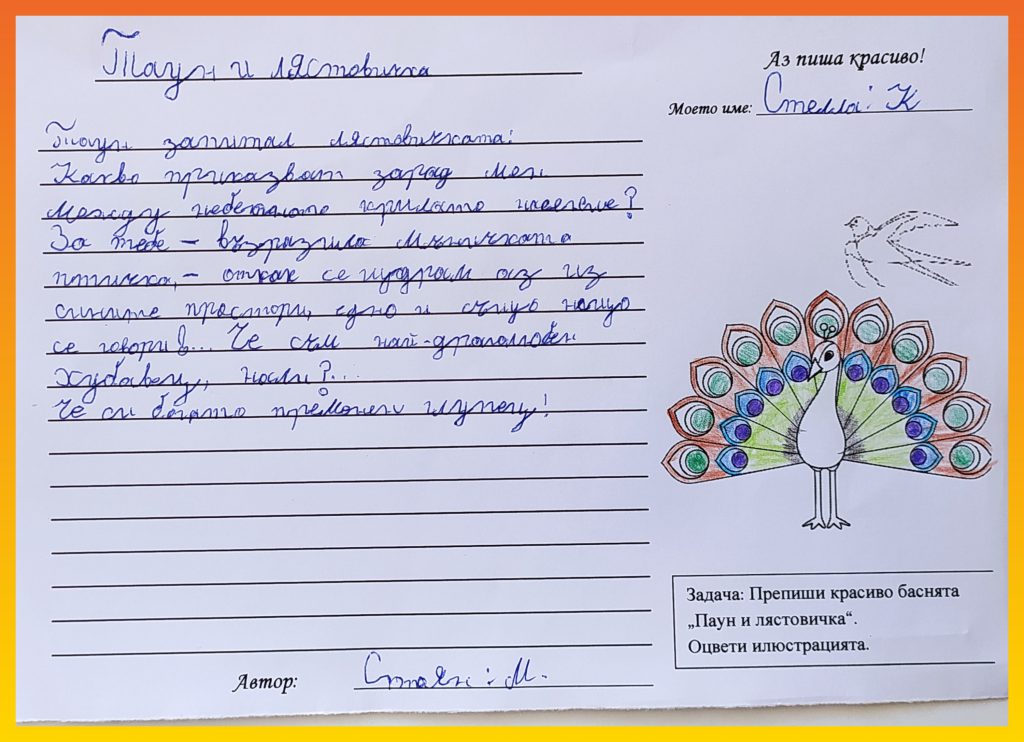 Паун и лястовичка
Аз пиша красиво!
Моето име: Стелла: К
Паун запитал лястовичката:
Какво приказват зарад мен
между небетлото крилато население?
За тебе – възразила мъничката
птичка, – откак се щурам аз из
сините простори, едно и също нещо
се говори в... Че съм най-драголюбен
хубавец, нали?...
Че си богато пременен глупец!
Задача: Препиши красиво баснята
„Паун и лястовичка“.
Оцвети илюстрацията.
Автор: Стоян: М.